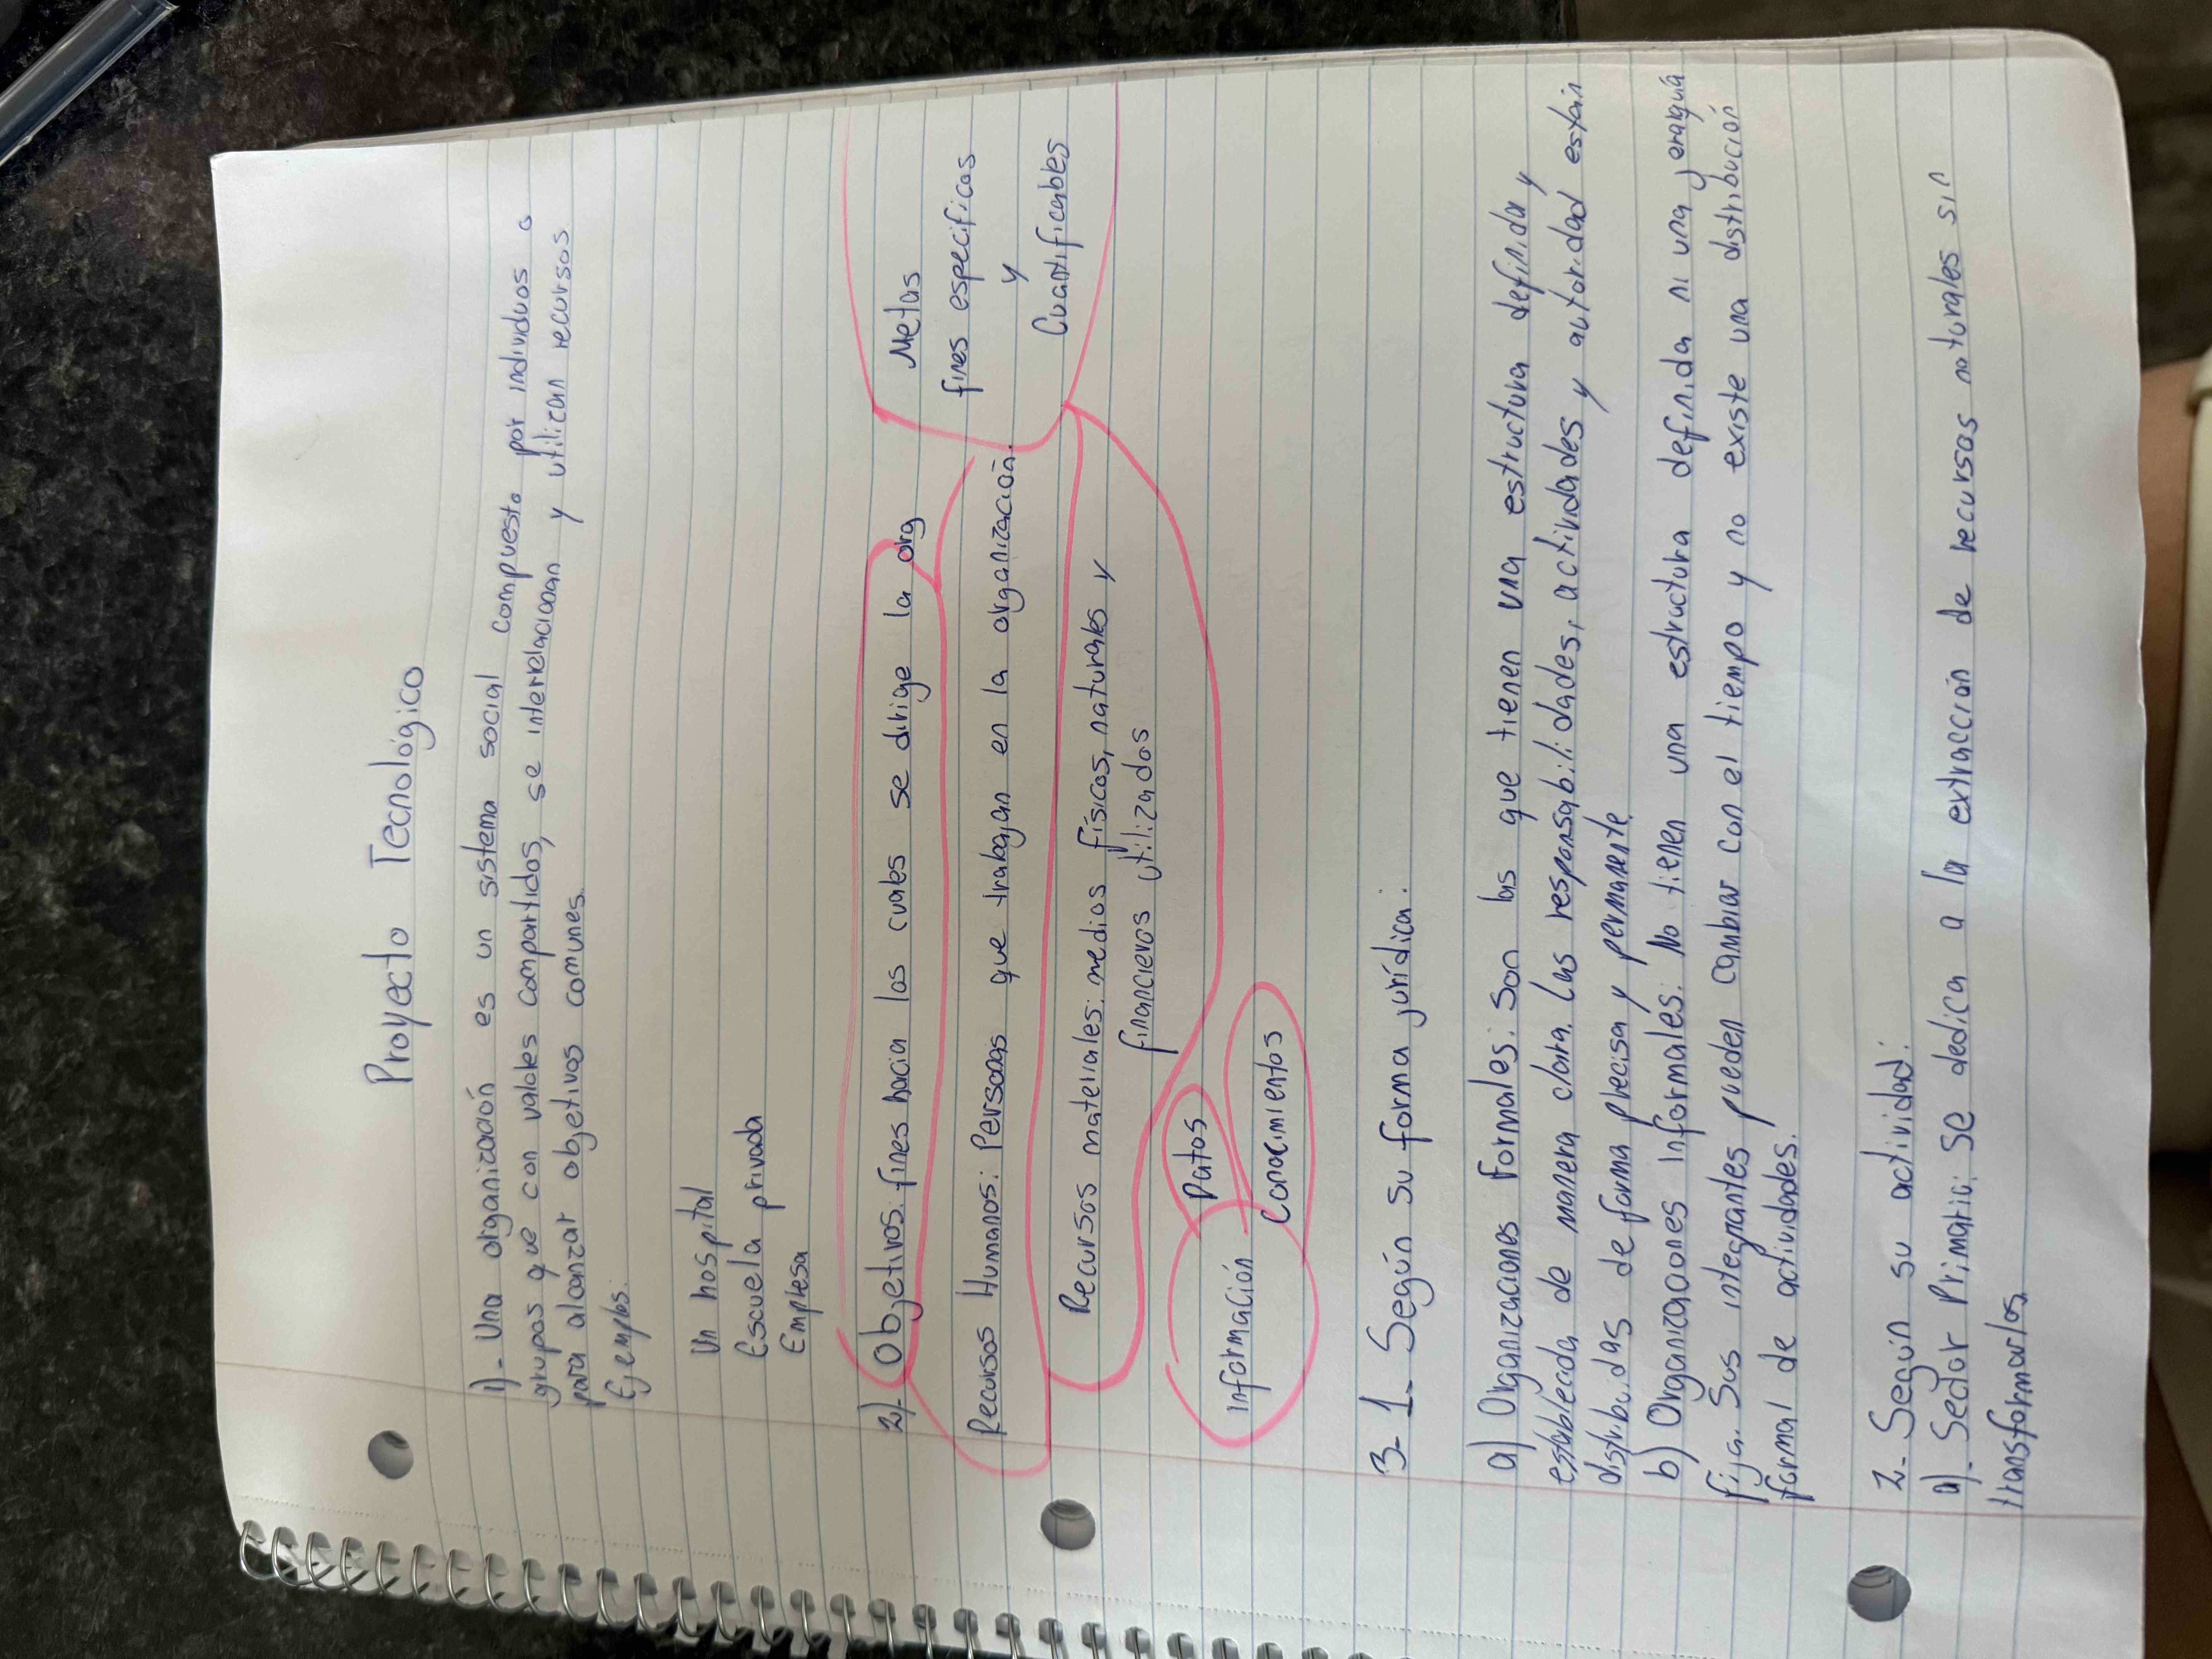 Proyecto Tecnológico
1)- Una organización es un sistema social compuesto por individuos o
grupos que con valores compartidos, se interrelacionan y utilican recursos
para alcanzar objetivos comunes.
Ejemplos:
Un hospital
Escuela privada
Empresa
2)- Objetivos: fines hacia los cuales se dirige la org
Metas
fines especificos
y
Cuantificables
Recursos Humanos: Personas que trabajan en la organización.
Recursos materiales: medios físicos, naturales y
financieros utilizados
Información
Datos
Conocimientos
3- 1- Según su forma jurídica:
a) Organizaciones Formales: Son las que tienen una estructura definida y
establecida de manera clara. Las responsabilidades, actividades y autoridad están
distribuidas de forma precisa y permanente
b) Organizaciones Informales: No tienen una estructura definida ni una jerarquía
fija. Sus integrantes pueden cambiar con el tiempo y no existe una distribución
formal de actividades.
2- Según su actividad:
a)- Sector Primario: Se dedica a la extracción de recursos naturales sin
transformarlos.